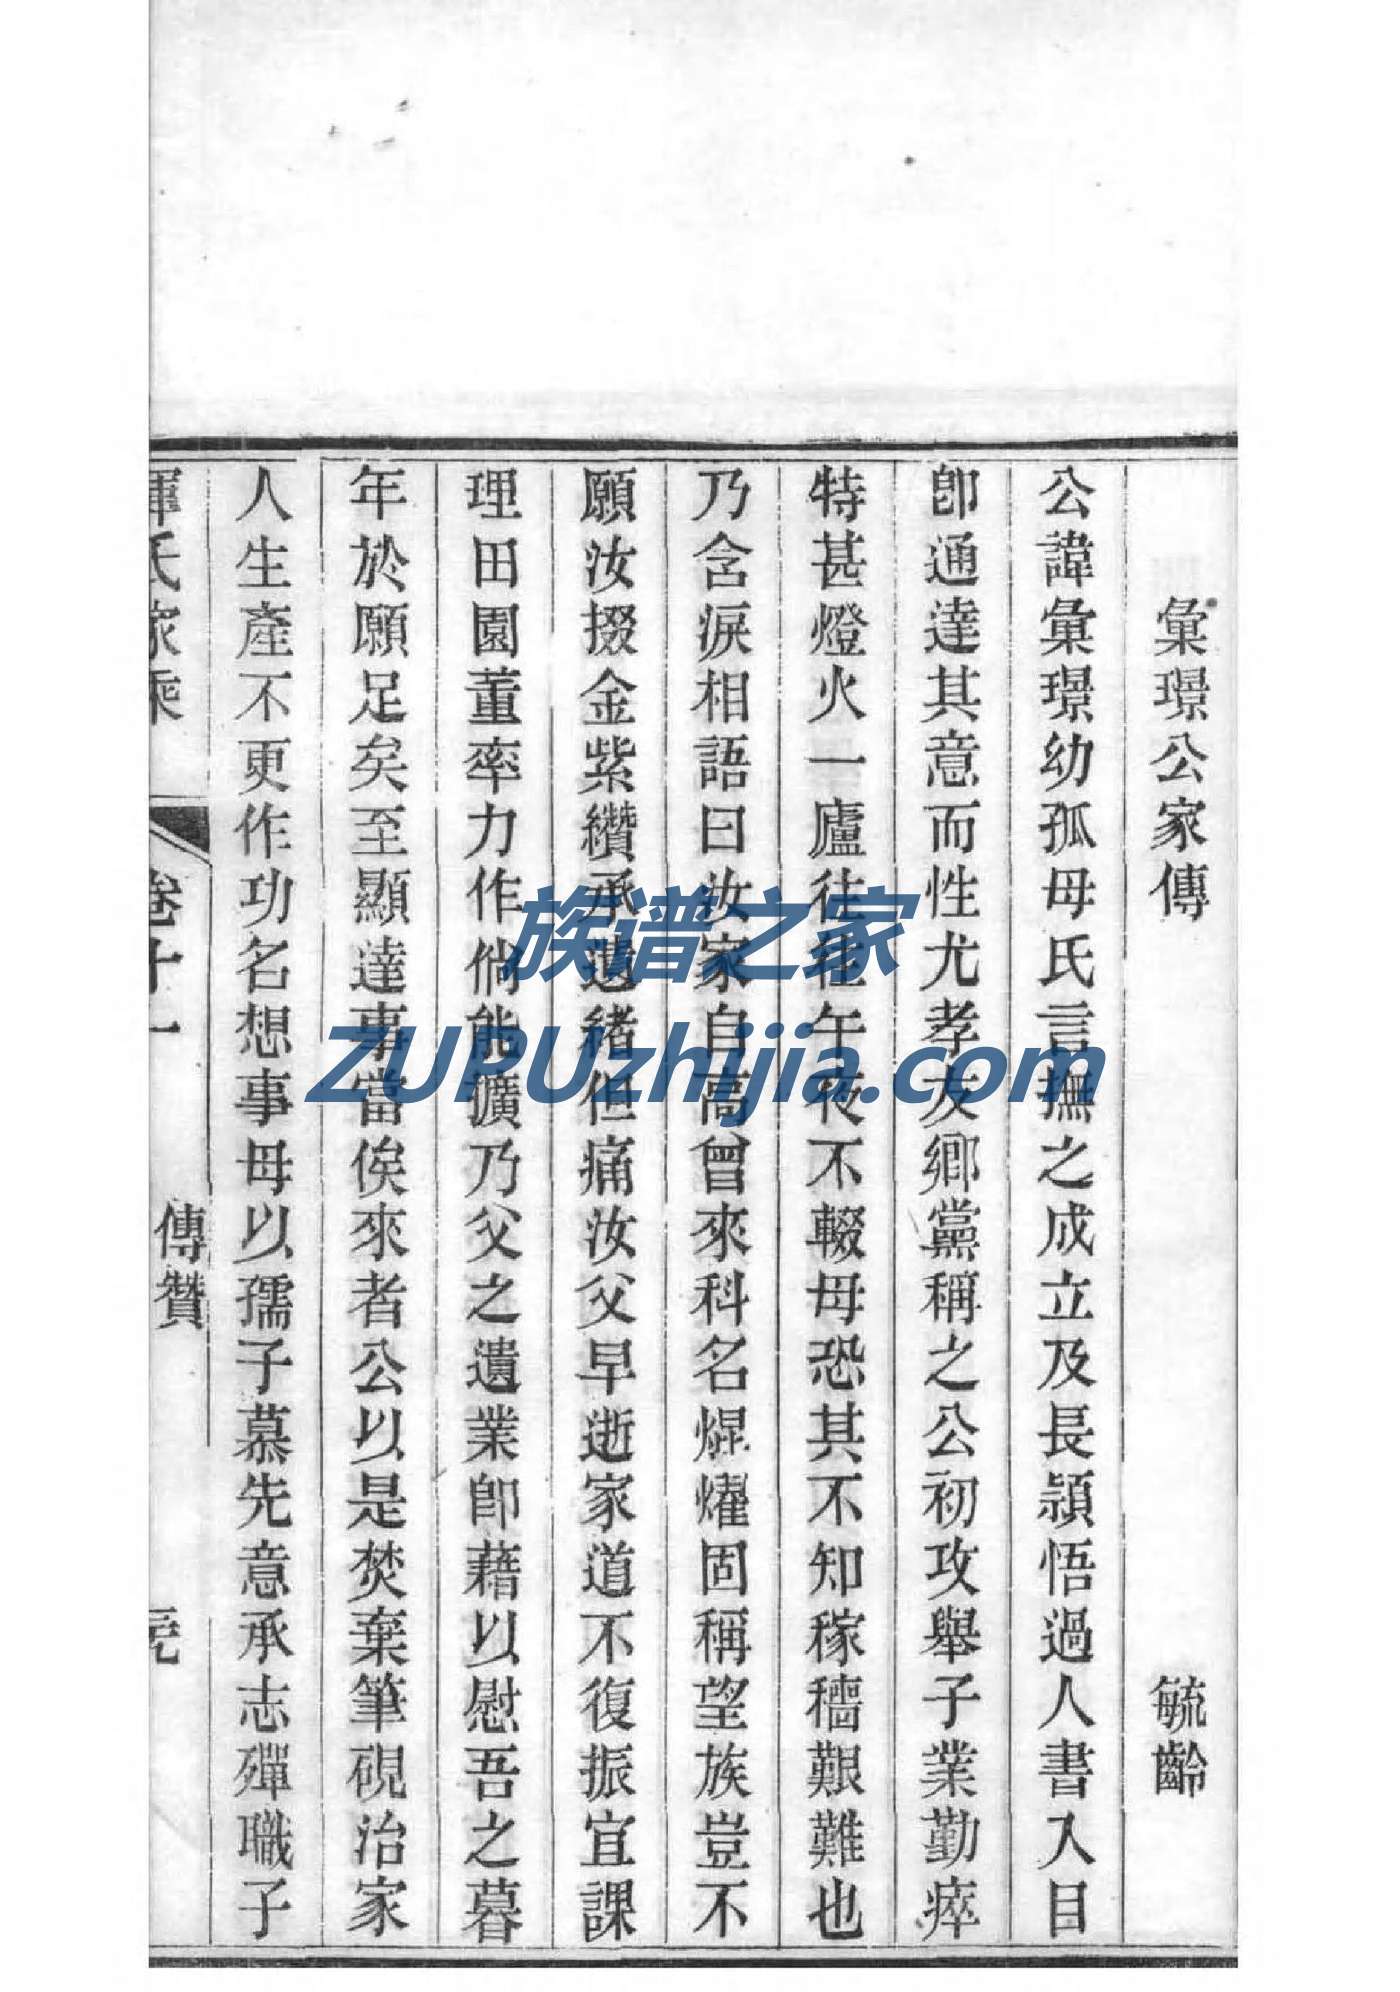 彙璟公家傳 毓齡
公諱彙璟幼孤母氏言撫之成立及長頴悟過人書入目
卽通達其意而性尤孝友鄉黨稱之公初攻舉子業勤瘁
特甚燈火一廬往往午夜不輟母恐其不知稼穡艱難也
乃含淚相語曰汝家自高曾來科名焜燿固稱望族豈不
願汝掇金紫纘承遺緒但痛汝父早逝家道不復振宜課
理田園董率力作倘能擴乃父之遺業卽藉以慰吾之暮
年於願足矣至顯達事當俟來者公以是焚棄筆硯治家
人生產不更作功名想事母以孺子慕先意承志殫職子
惲氏家乘 卷十一 傳贊
族谱之家
ZUPUzhijia.com